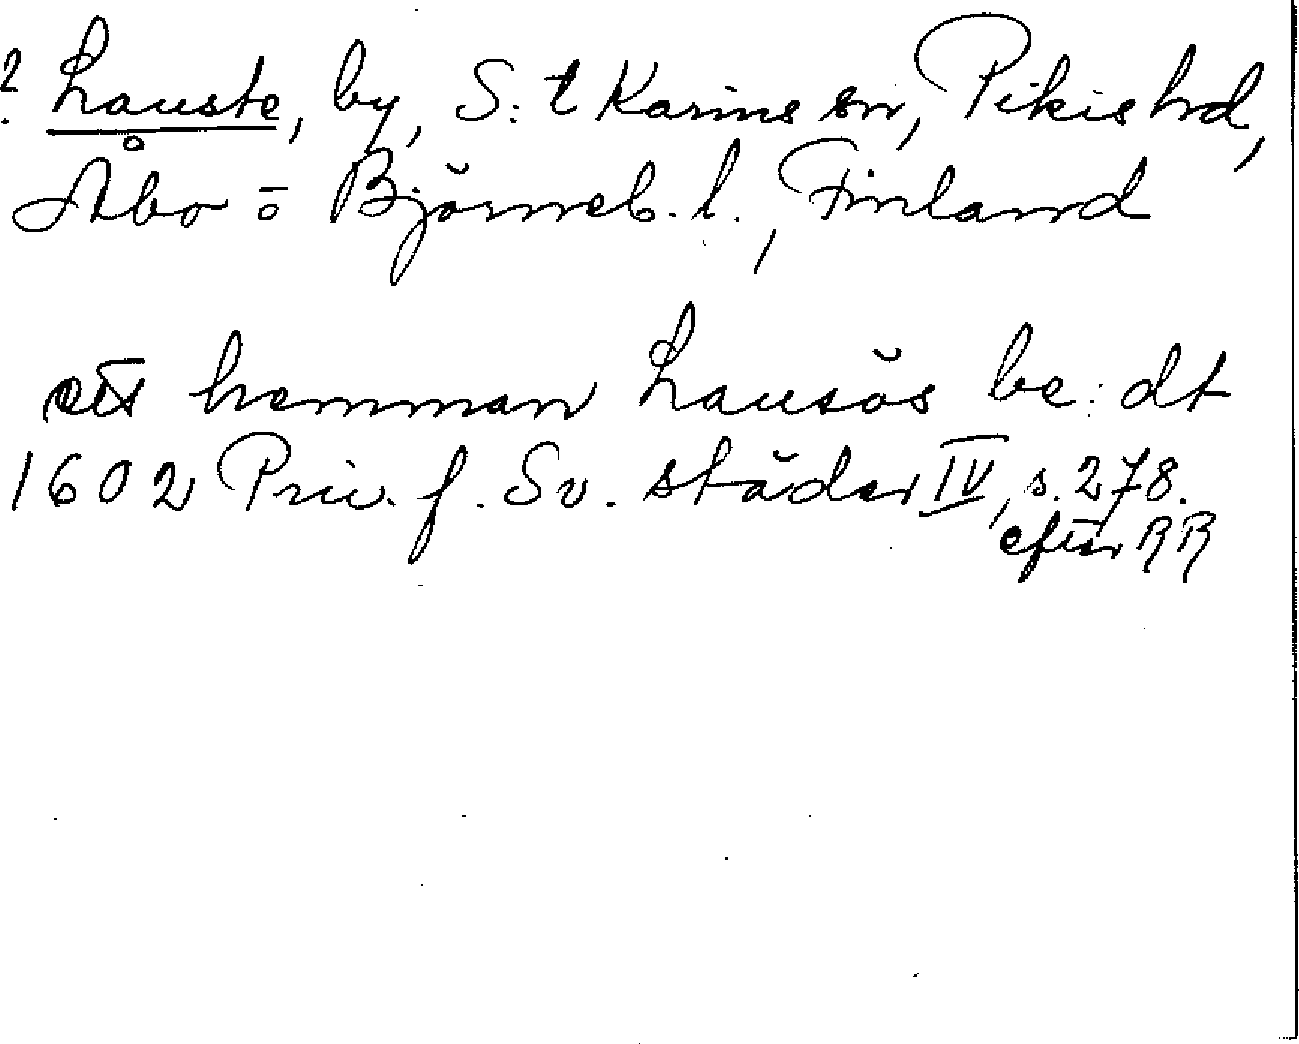 ? Lauste, by, S:t Karins sn, Pikis hd,
Åbo o Björneb. l., Finland
ett hemman Lausös be: dt
1602 Priv. f. Sv. städer IV, s. 278.
efter RR